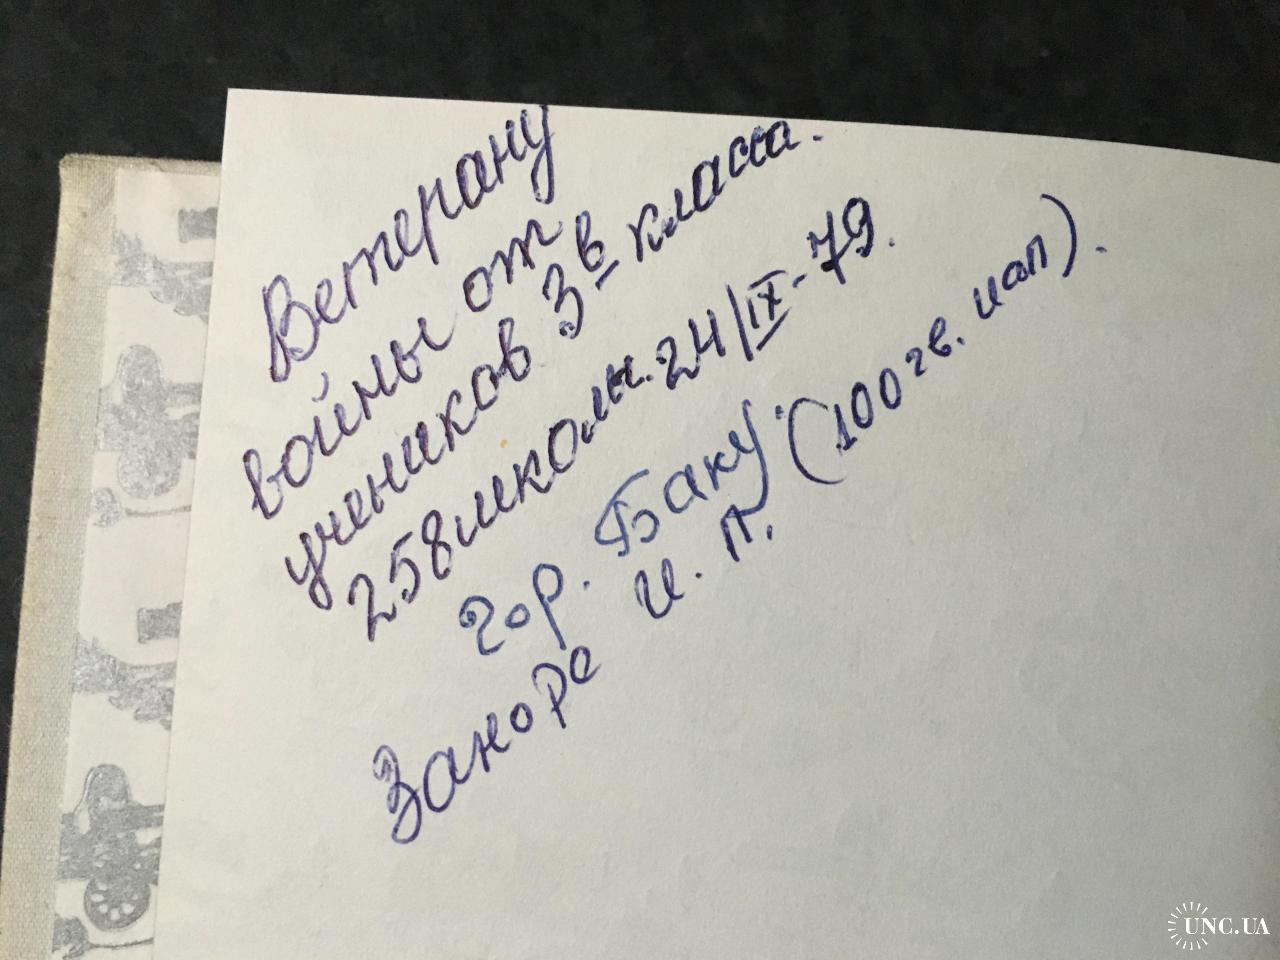 Ветерану
войны от
учеников 3в класса.
258 школы. 24/IX-79.
гор. Баку. (100 гв. иап).
Заноре И. П.
UNC.UA